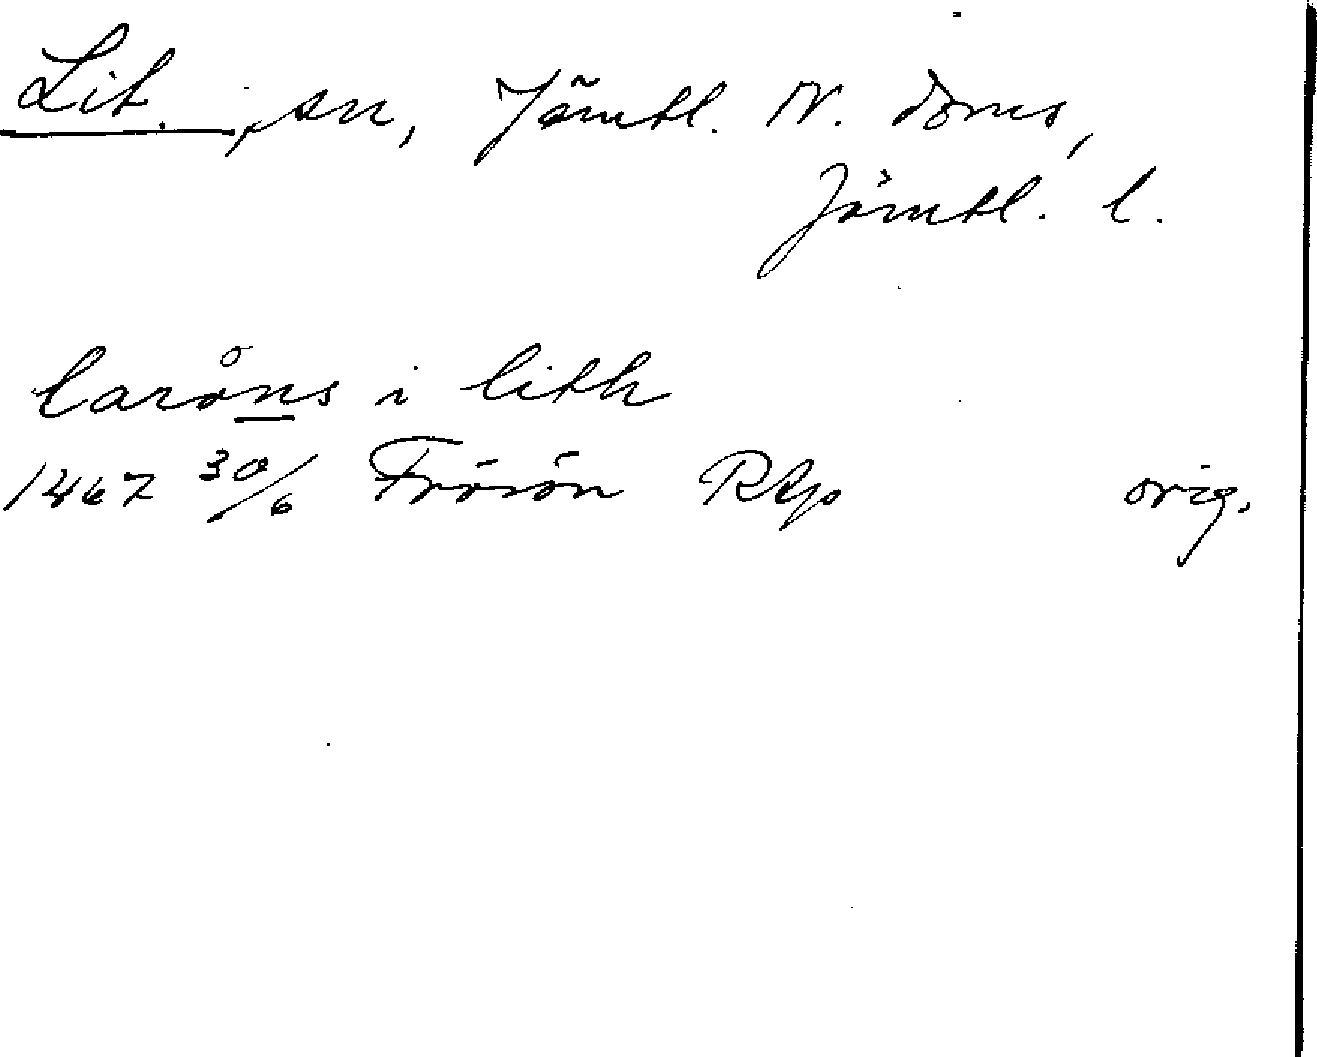 Lit, sn, Jämtl. N. doms,
Jämtl. l.
laröns i lith
1467 30/6 Frösön RAp orig.